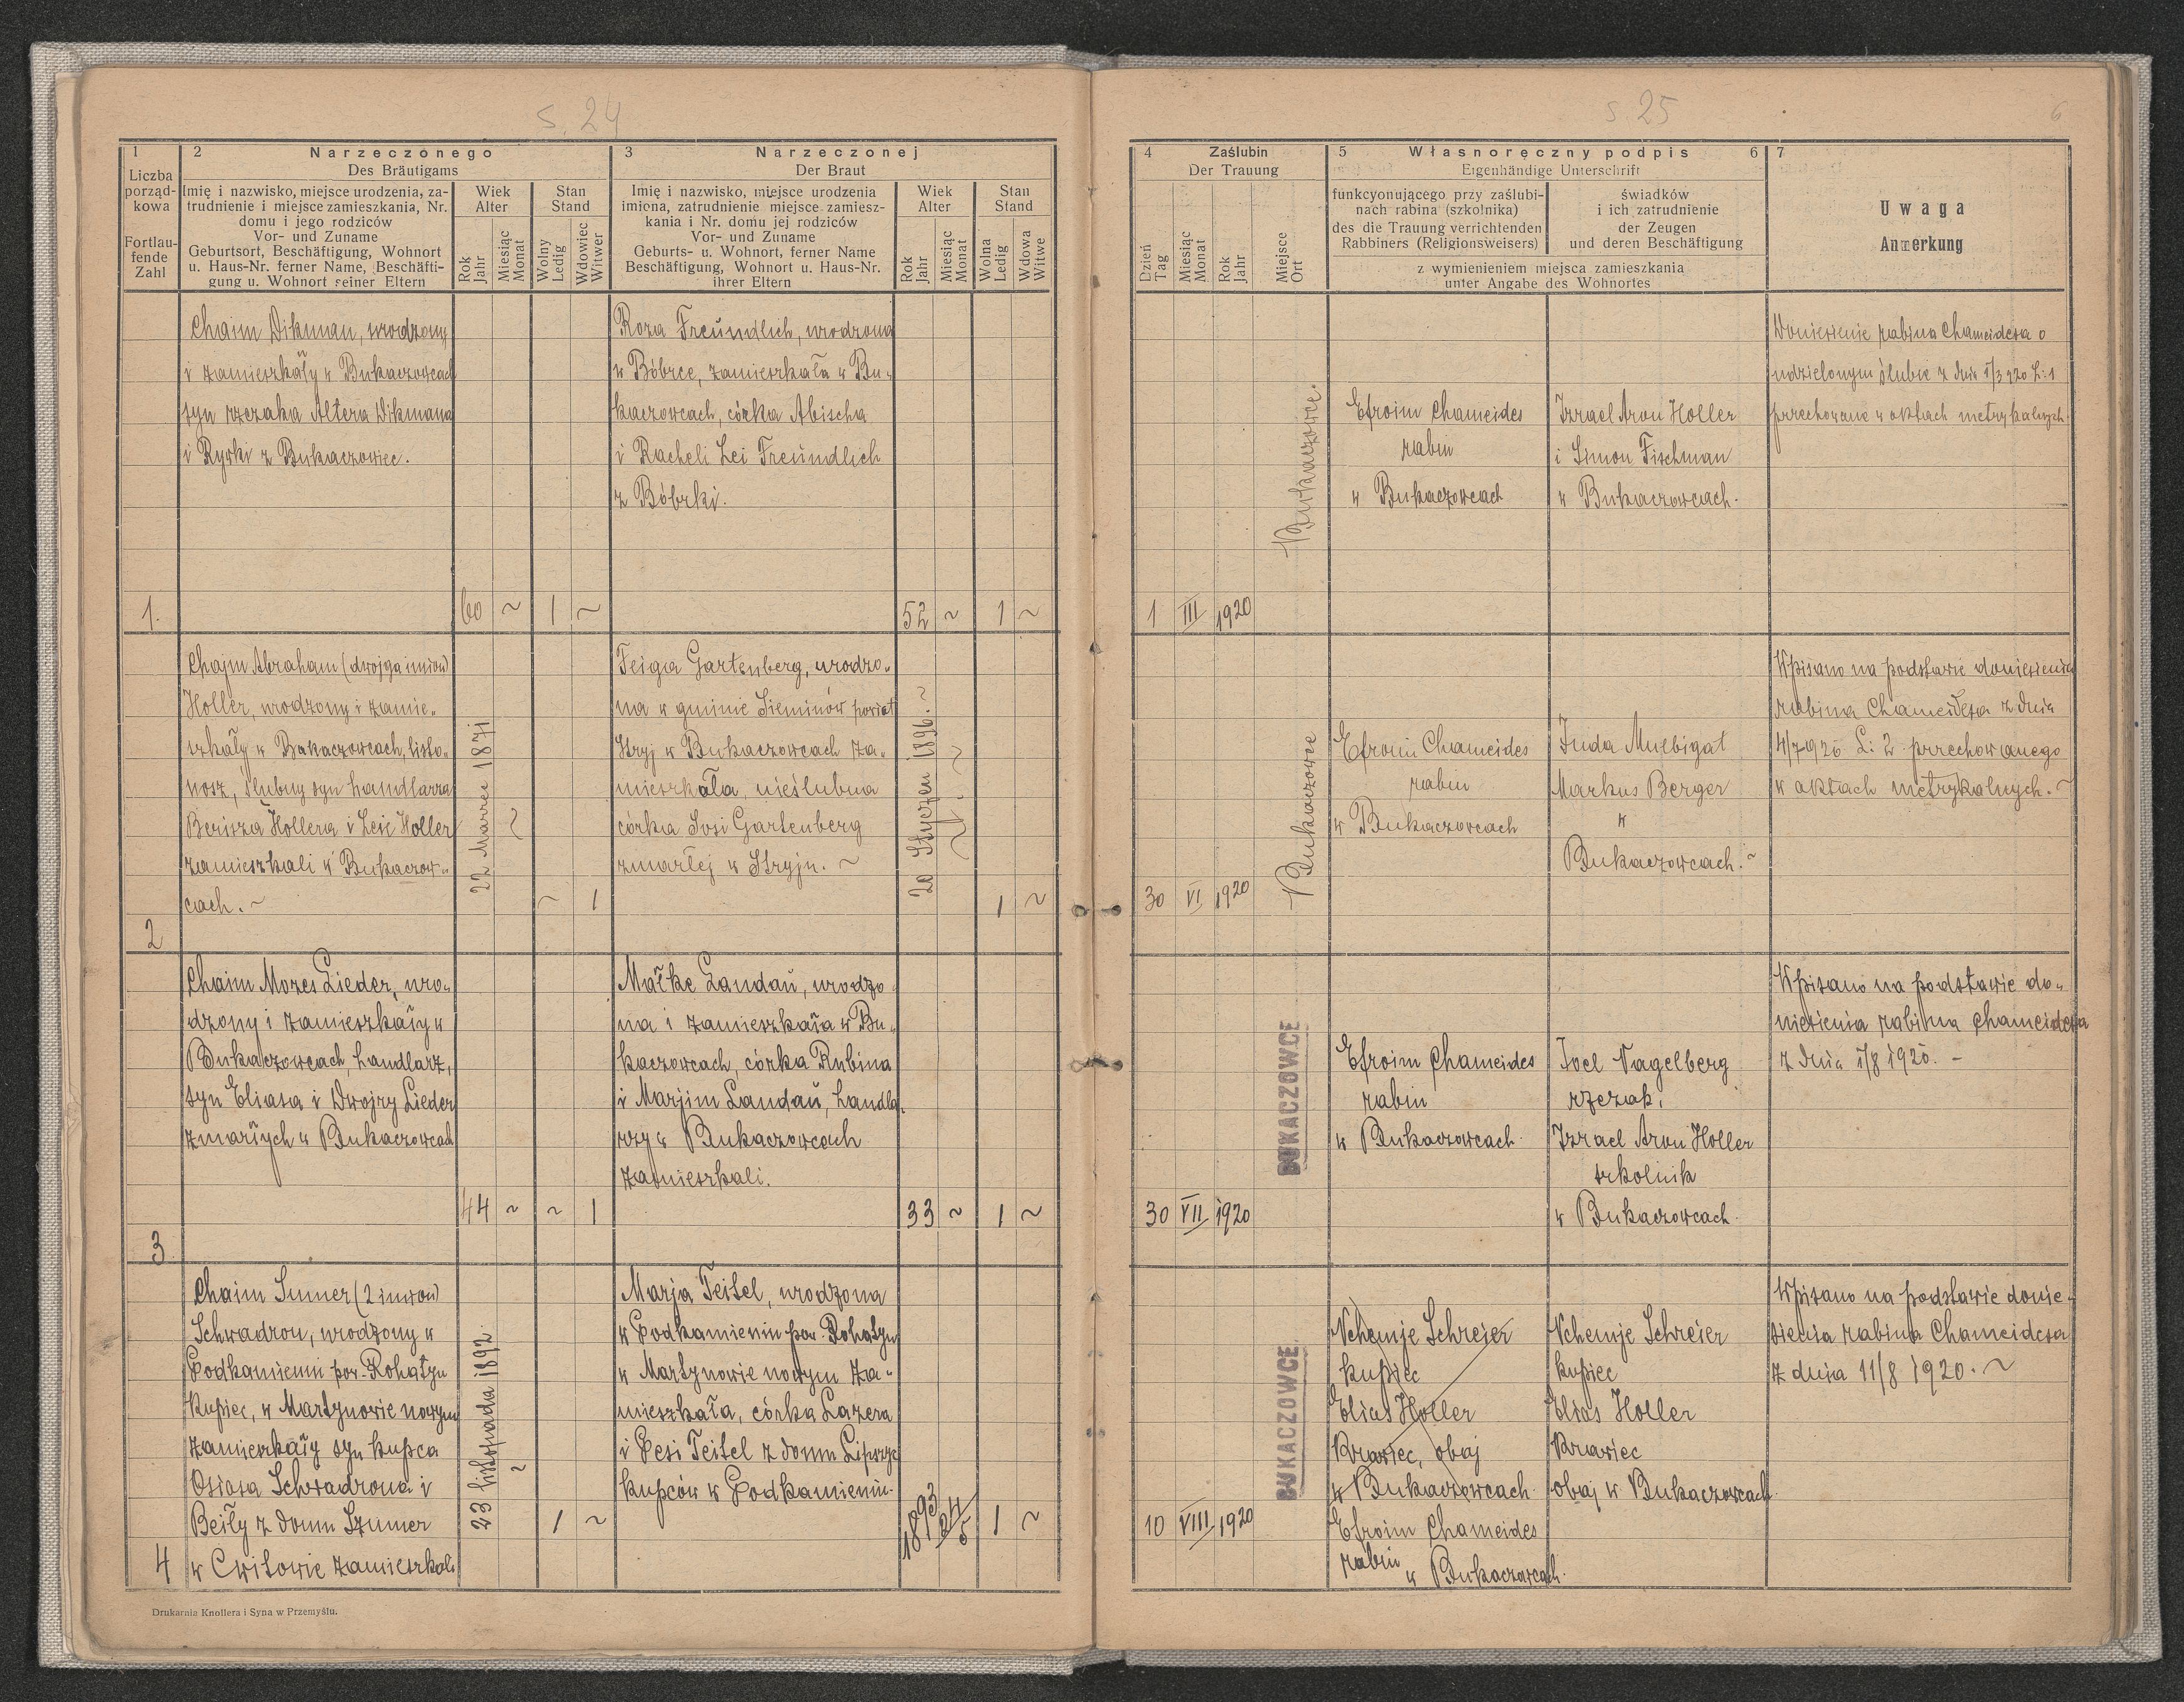 s. 24
1
Liczba
porząd-
kowa
Fortlau-
fende
Zahl
2 Narzeczonego
Des Bräutigams
Imię i nazwisko, miejsce urodzenia, za-
trudnienie i miejsce zamieszkania, Nr.
domu i jego rodziców
Vor- und Zuname
Geburtsort, Beschäftigung, Wohnort
u. Haus-Nr. ferner Name, Beschäfti-
gung u. Wohnort seiner Eltern
Wiek
Alter
Rok
Jahr
Miesiąc
Monat
Stan
Stand
Wolny
Ledig
Wdowiec
Witwer
3 Narzeczonej
Der Braut
Imię i nazwisko, miejsce urodzenia
imiona, zatrudnienie miejsce zamiesz-
kania i Nr. domu jej rodziców
Vor- und Zuname
Geburts- u. Wohnort, ferner Name
Beschäftigung, Wohnort u. Haus-Nr.
ihrer Eltern
Wiek
Alter
Rok
Jahr
Miesiąc
Monat
Stan
Stand
Wolna
Ledig
Wdowa
Witwe
Chaim Dikman, urodzony
i zamieszkały w Bukaczowcach
syn rzezaka Altera Dikmana
i Rywki z Bukaczowiec.
1. 60 ~ 1 ~
Roza Freundlich, urodzona
w Bóbrce, zamieszkała w Bu-
kaczowcach, córka Abischa
i Racheli Lei Freundlich
z Bóbrki.
52 ~ 1 ~
Chajm Abraham (dwojga imion)
Holler, urodzony i zamie-
szkały w Bukaczowcach, listo-
nosz, ślubny syn handlarza
Berisza Hollera i Leie Holler
zamieszkali w Bukaczow-
cach. ~
2
22 Marzec 1871 ~
~ 1
Feiga Gartenberg, urodzo-
na w gminie Sieminów powiat
Stryj w Bukaczowcach za-
mieszkała, nieślubna
córka Sosi Gartenberg
zmarłej w Stryju. ~
20 Styczeń 1896. ~
1 ~
Chaim Mozes Lieder, uro-
dzony i zamieszkały w
Bukaczowcach, handlarz,
syn Eliasa i Dwojry Lieder
zmarłych w Bukaczowcach
44 ~ ~ 1
3
Małke Landau, urodzo-
na i zamieszkała w Bu-
kaczowcach, córka Rubina
i Marjim Landau, handla-
rzy w Bukaczowcach
zamieszkali.
33 ~ 1 ~
Chaim Sumer (2 imion)
Schwadron, urodzony w
Podkamieniu pow. Rohatyn
kupiec, w Martynowie nowym
zamieszkały syn kupca
Osiasa Schwadrona i
Beiły z domu Szumer
4 w Cwitowie zamieszkali
23 listopada 1892. ~
1 ~
Marja Teitel, urodzona
w Podkamieniu pow. Rohatyn
w Martynowie nowym za-
mieszkała, córka Lazera
i Pesi Teitel z domu
kupców w Podkamieniu.
1893 24/5 1 ~
Drukarnia Knollera i Syna w Przemyślu.
s 25
6
4 Zaślubin
Der Trauung
Dzień
Tag
Miesiąc
Monat
Rok
Jahr
Miejsce
Ort
5 Własnoręczny podpis 6
Eigenhändige Unterschrift
funkcyonującego przy zaślubi-
nach rabina (szkolnika)
des die Trauung verrichtenden
Rabbiners (Religionsweisers)
świadków
i ich zatrudnienie
der Zeugen
und deren Beschäftigung
z wymienieniem miejsca zamieszkania
unter Angabe des Wohnortes
7
Uwaga
Anmerkung
1 III 1920
Bukaczowce.
Efroim Chameides
rabin
w Bukaczowcach
Izrael Aron Holler
i Simon Fischman
w Bukaczowcach.
Doniesienie rabina Chameidesa o
udzielonym ślubie z dnia 1/3 920 L: 1
przechowane w aktach metrykalnych.
30 VI 1920
Bukaczowce
Efroim Chameides
rabin
w Bukaczowcach
Juda Muebigat
Markus Berger
w
Bukaczowcach. ~
Wpisano na podstawie doniesienia
rabina Chameidesa z dnia
4/7 1920 L: 2 przechowanego
w aktach metrykalnych. ~
30 VII 1920
BUKACZOWCE
Efroim Chameides
rabin
w Bukaczowcach.
Joel Nagelberg
rzezak,
Izrael Aron Holler
szkolnik
w Bukaczowcach.
Wpisano na podstawie do-
niesienia rabina Chameidesa
z dnia 1/8 1920. -
10 VIII 1920
BUKACZOWCE.
Nchemje Schreier
kupiec
Elias Holler
Krawiec, obaj
w Bukaczowcach.
Efroim Chameides
rabin
w Bukaczowcach.
Nchemje Schreier
kupiec
Elias Holler
Krawiec
obaj w Bukaczowcach.
Wpisano na podstawie donie-
sienia rabina Chameidesa
z dnia 11/8 1920. ~